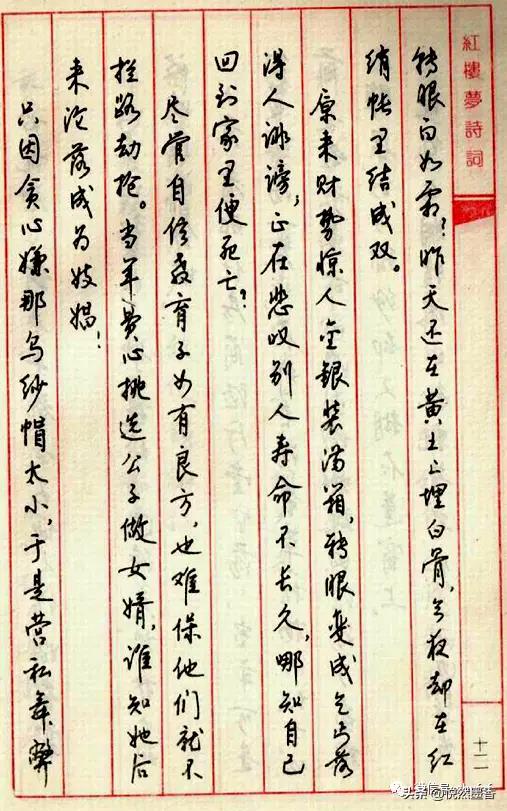 紅樓夢詩詞
转眼白如霜？昨天还在黄土上埋白骨，今夜却在红
绡帐里结成双。
原来财势惊人金銀装满箱，转眼变成乞丐落
得人诽谤；正在悲叹别人寿命不长久，哪知自己
回到家里便死亡？
尽管自信教育子女有良方，也难保他们就不
拦路劫抢。当年费心挑选公子做女婿，谁知她后
来沦落成为妓娼！
只因贪心嫌那乌纱帽太小，于是营私舞弊
十二
头条 @悦然画香